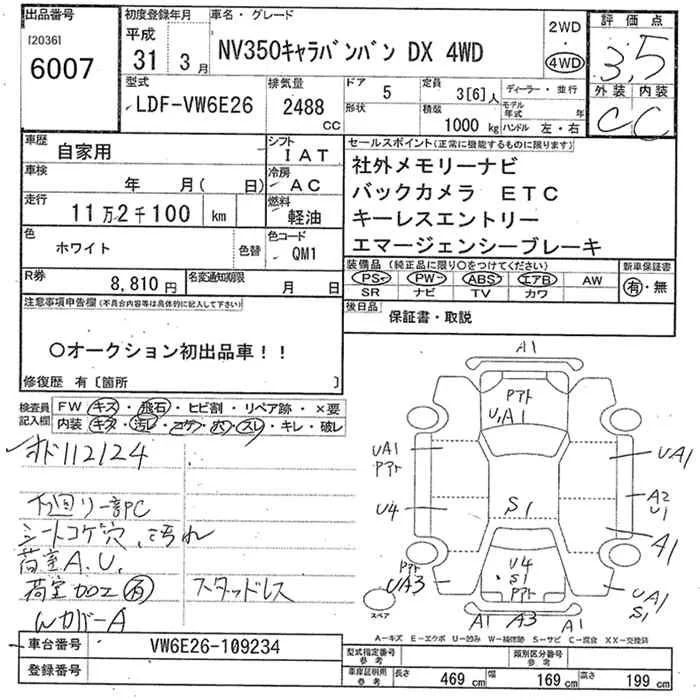 出品番号 初度登録年月 車名・グレード 評価点
[2036] 平成 2WD
6007 31年 3月 NV350キャラバンバン DX 4WD ・ 4WD 3.5
型式 排気量 ドア 定員 ディーラー・並行 外装 内装
LDF-VW6E26 2488 CC 5 3[6]人 モデル年式 年 C C
形状 積載 1000 kg ハンドル 左・右
車歴 自家用 シフト IAT セールスポイント(正常に機能するものに限ります)
車検 年 月( 日) 冷房 AC 社外メモリーナビ
走行 11万2千100 km 燃料 軽油 バックカメラ ETC
色 ホワイト 色替 色コード QM1 キーレスエントリー
エマージェンシーブレーキ
R券 8,810円 名変通知期限 月 日 装備品(純正品に限り○をつけてください) 新車保証書
PS・PW・ABS・エアB・AW 有・無
SR ナビ TV カワ
注意事項申告欄(不具合内容等は具体的に記入して下さい) 後日品 保証書・取説
○オークション初出品車!!
修復歴 有〔箇所 〕
検査員記入欄 FW キズ・飛石・ヒビ割・リペア跡・×要
内装 キズ・汚レ・コゲ・穴・スレ・キレ・破レ
112124
下廻リ一部PC
シートコゲ穴、汚れ
荷室A.U.
荷室加工有 スタッドレス
WカバーA
A1
U,A1
UA1 UA1
U4 S1 A2
U1
A1
UA3 U4 UA1
S1 S1
A1 A3 A1
スペア
A-キズ E-エクボ U-凹み W-補修跡 S-サビ C-腐食 XX-交換済
車台番号 VW6E26-109234 型式指定番号 参考 類別区分番号 参考
登録番号 車庫証明用 参考 長さ 469 cm 幅 169 cm 高さ 199 cm